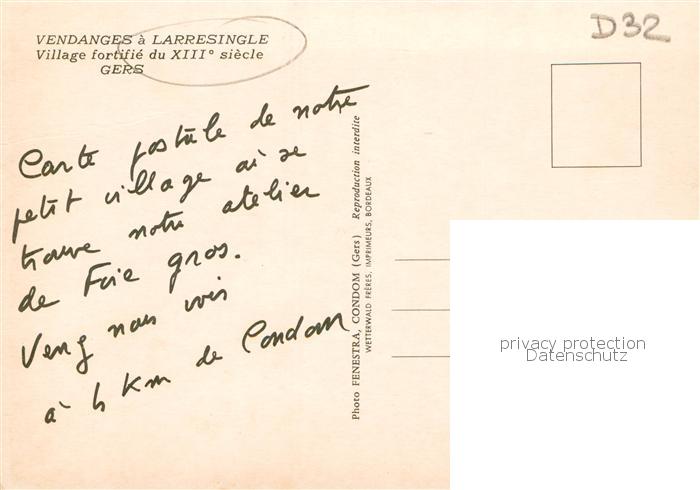 D32
VENDANGES à LARRESINGLE
Village fortifié du XIII° siècle
GERS
Carte postale de notre
petit village où se
trouve notre atelier
de Foie gros.
Venez nous voir
à 4 Km de Condom
Photo FENESTRA, CONDOM (Gers) Reproduction interdite
WETTERWALD FRÈRES, IMPRIMEURS, BORDEAUX
privacy protection
Datenschutz